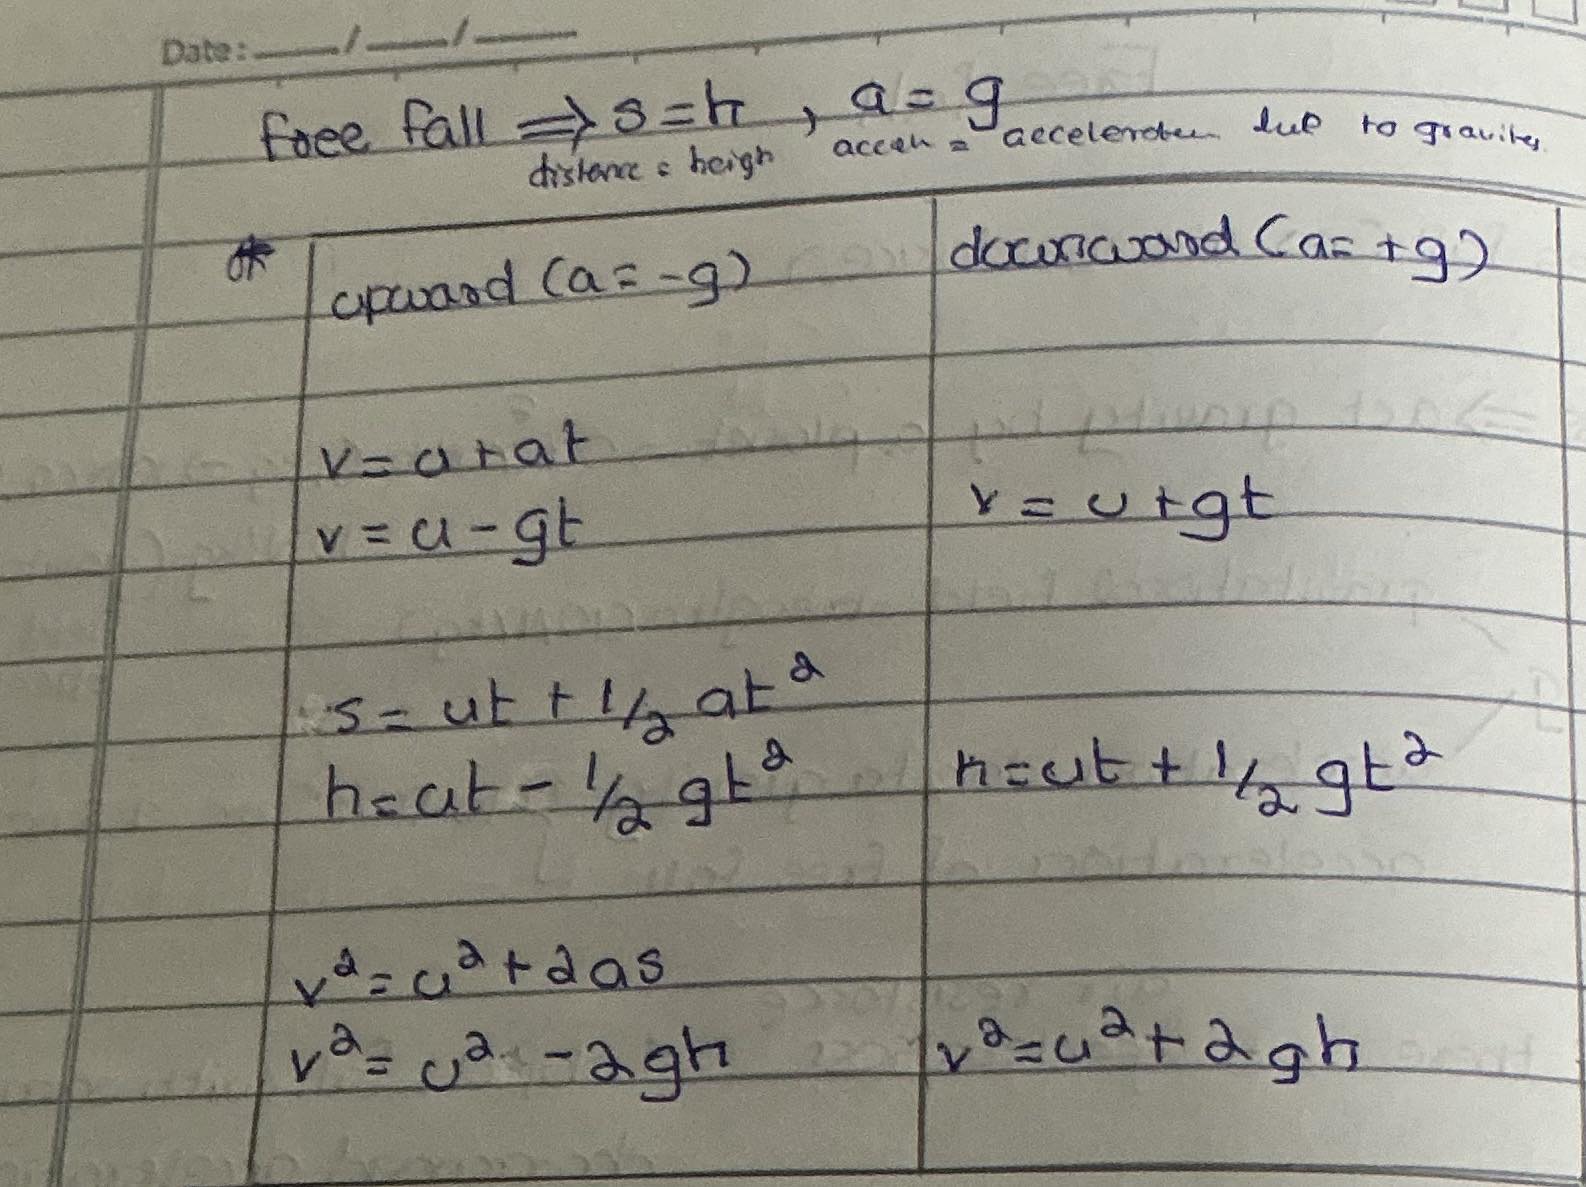 Date: ___/___/___
free fall ⇒ s = h , a = g
distance = heigh accen = acceleration due to gravity
* upward (a = -g) downward (a = +g)
v = u + at
v = u - gt v = u + gt
s = ut + 1/2 at²
h = ut - 1/2 gt² h = ut + 1/2 gt²
v² = u² + 2as
v² = u² - 2gh v² = u² + 2gh